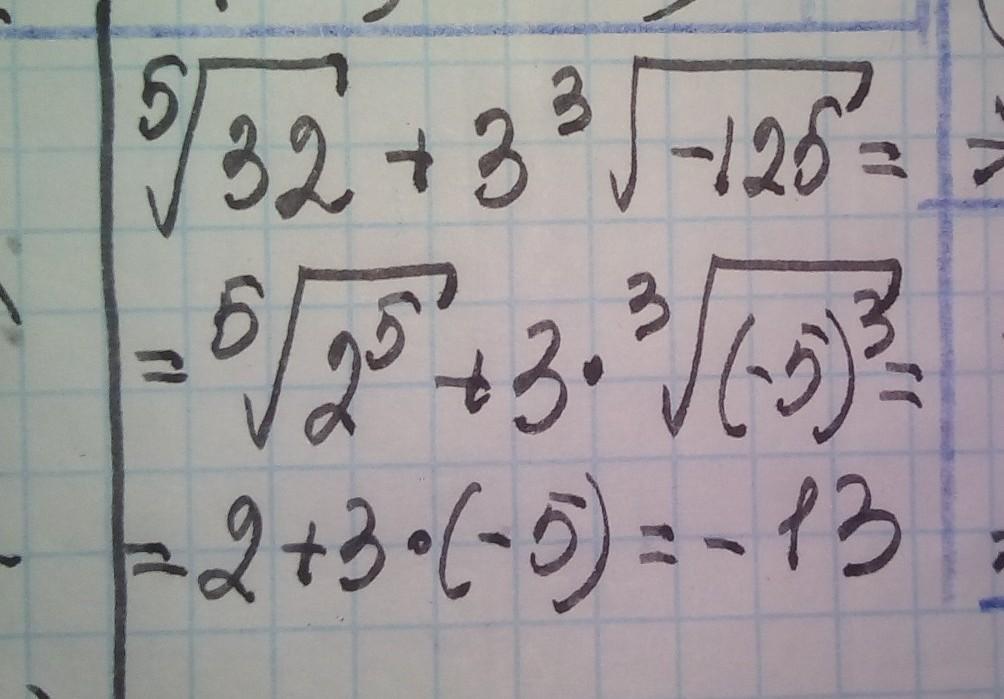 ⁵√32 + 3 ³√-125 =
= ⁵√2⁵ + 3 · ³√(-5)³ =
= 2 + 3 · (-5) = -13